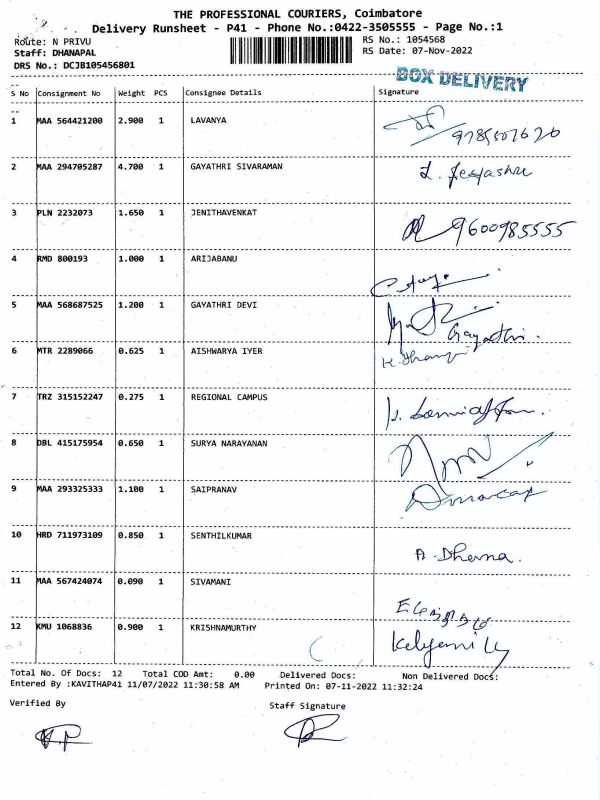 THE PROFESSIONAL COURIERS, Coimbatore
Delivery Runsheet - P41 - Phone No.:0422-3505555 - Page No.:1
Route: N PRIVU RS No.: 1054568
Staff: DHANAPAL RS Date: 07-Nov-2022
DRS No.: DCJB105456801
BOX DELIVERY
S No Consignment No Weight PCS Consignee Details Signature
1 MAA 564421200 2.900 1 LAVANYA
2 MAA 294705287 4.700 1 GAYATHRI SIVARAMAN
3 PLN 2232073 1.650 1 JENITHAVENKAT 9600985555
4 RMD 800193 1.000 1 ARIJABANU
5 MAA 568687525 1.200 1 GAYATHRI DEVI Gayathri.
6 MTR 2289066 0.625 1 AISHWARYA IYER
7 TRZ 315152247 0.275 1 REGIONAL CAMPUS
8 DBL 415175954 0.650 1 SURYA NARAYANAN
9 MAA 293325333 1.100 1 SAIPRANAV
10 HRD 711973109 0.850 1 SENTHILKUMAR
11 MAA 567424074 0.090 1 SIVAMANI
12 KMU 1068836 0.900 1 KRISHNAMURTHY
Total No. Of Docs: 12 Total COD Amt: 0.00 Delivered Docs: Non Delivered Docs:
Entered By :KAVITHAP41 11/07/2022 11:30:58 AM Printed On: 07-11-2022 11:32:24
Verified By Staff Signature